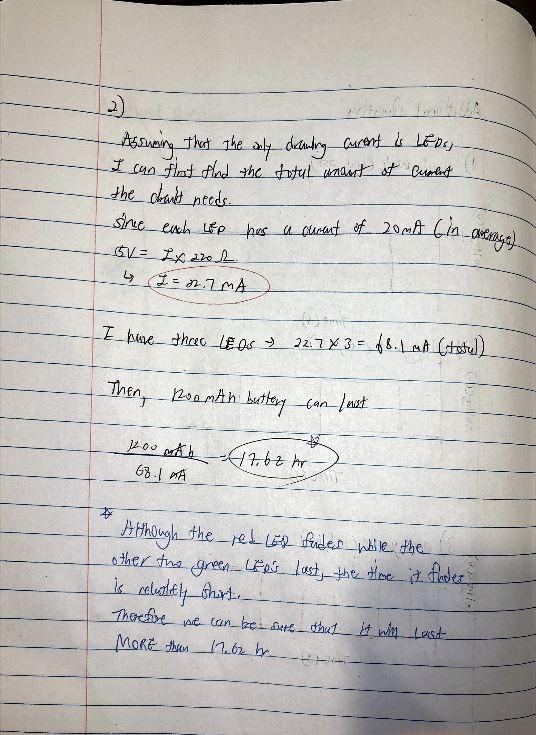 2)
Assuming that the only drawing current is LEDs,
I can first find the total amount of current
the circuit needs.
Since each LED has a current of 20mA (in average)
5V = I × 220 Ω
↳ I = 22.7 mA
I have three LEDs → 22.7 × 3 = 68.1 mA (total)
Then, 1200mAh battery can last
1200 mAh / 68.1 mA = 17.62 hr *
* Although the red LED fades while the
other two green LEDs last, the time it fades
is relatively short.
Therefore we can be sure that it will last
MORE than 17.62 hr